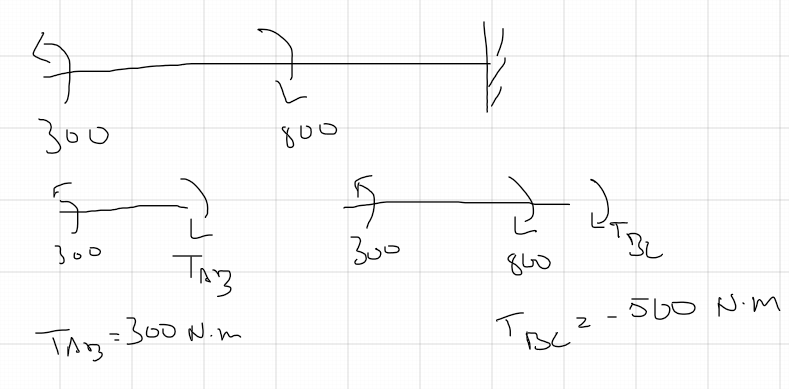 300
800
300
T_AB
300
800
T_BC
T_AB = 300 N.m
T_BC = -500 N.m